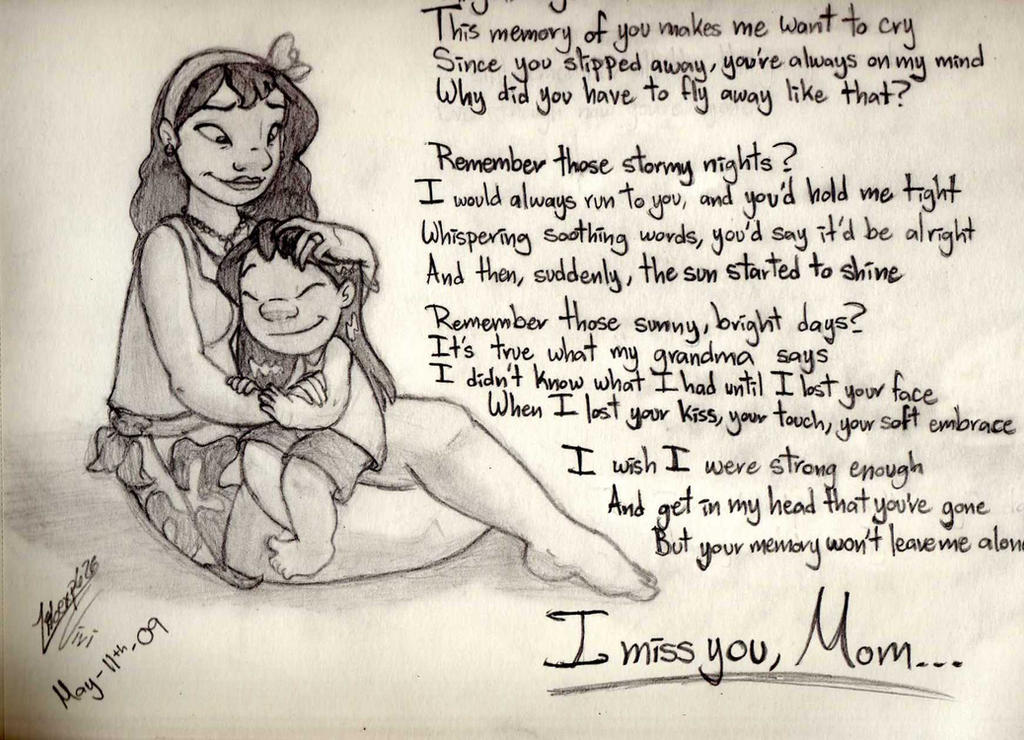 This memory of you makes me want to cry
Since you slipped away, you're always on my mind
Why did you have to fly away like that?
Remember those stormy nights?
I would always run to you, and you'd hold me tight
Whispering soothing words, you'd say it'd be alright
And then, suddenly, the sun started to shine
Remember those sunny, bright days?
It's true what my grandma says
I didn't know what I had until I lost your face
When I lost your kiss, your touch, your soft embrace
I wish I were strong enough
And get in my head that you've gone
But your memory won't leave me alone
I miss you, Mom...
Vivi
May-11th-09